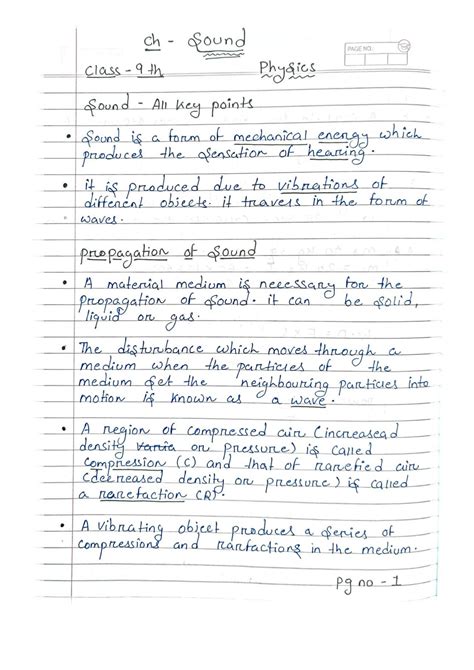 ch - Sound
PAGE NO.:
Class - 9th Physics
Sound - All key points
• Sound is a form of mechanical energy which
produces the sensation of hearing.
• it is produced due to vibrations of
different objects. it travels in the form of
waves.
propagation of Sound
• A material medium is necessary for the
propagation of sound. it can be solid,
liquid or gas.
• The disturbance which moves through a
medium when the particles of the
medium set the neighbouring particles into
motion is known as a wave.
• A region of compressed air (increasead
density varia or pressure) is called
compression (c) and that of rarefied air
(decreased density or pressure) is called
a rarefaction (R).
• A vibrating object produces a series of
compressions and rarfactions in the medium.
Pg no - 1